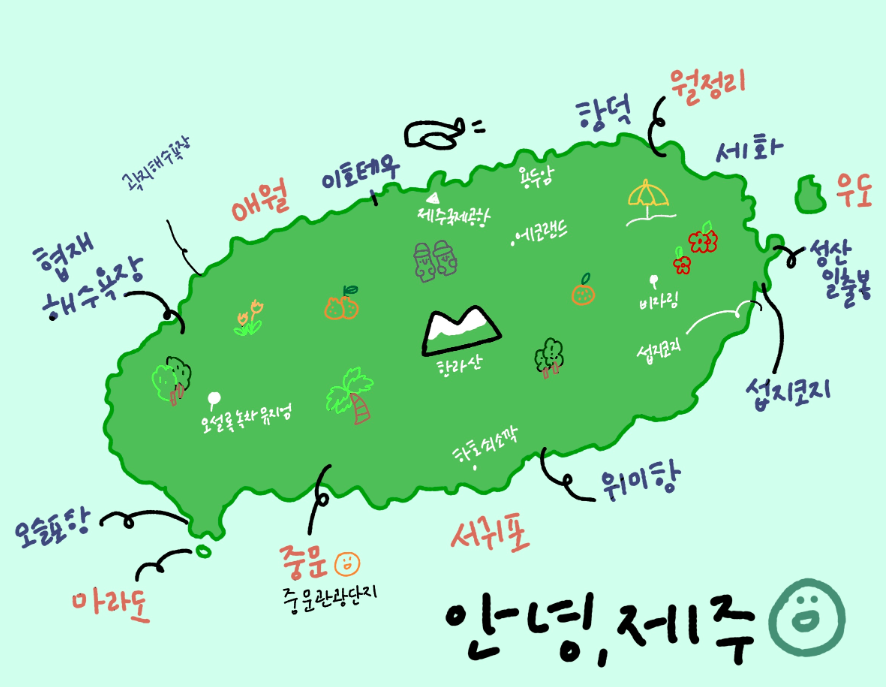 월정리
함덕
곽지해수욕장
세화
이호테우
용두암
애월
우도
제주국제공항
에코랜드
협재
해수욕장
성산
일출봉
비자림
한라산
섭지코지
섭지코지
오설록 녹차 뮤지엄
하효쇠소깍
위미항
오슬포항
서귀포
중문
마라도
중문관광단지
안녕, 제주